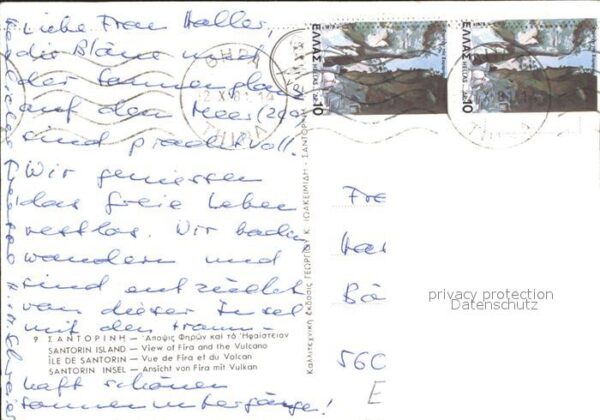 Liebe Frau Haller,
die Bläue und
der Sonnenglanz
auf dem Meer (20°)
sind prachtvoll.
Wir geniessen
das freie Leben
restlos. Wir baden
wandern und
sind entzückt
von dieser Insel
mit den traum-
haft schönen
Sonnenuntergänge!
9 ΣΑΝΤΟΡΙΝΗ — Ἄποψις Φηρῶν καὶ τὸ Ἡφαίστειον
SANTORIN ISLAND — View of Fira and the Vulcano
ÎLE DE SANTORIN — Vue de Fira et du Volcan
SANTORIN INSEL — Ansicht von Fira mit Vulkan
Καλλιτεχνικὴ Ἔκδοσις ΓΕΩΡΓΙΟΥ Κ. ΙΩΑΚΕΙΜΙΔΗ - ΣΑΝΤΟΡΙΝΗ
ΕΛΛΑΣ HELLAS 10
ΕΛΛΑΣ HELLAS 10
ΘΗΡΑ
THIRA
Fra
Ha
Bä
560
E
privacy protection
Datenschutz